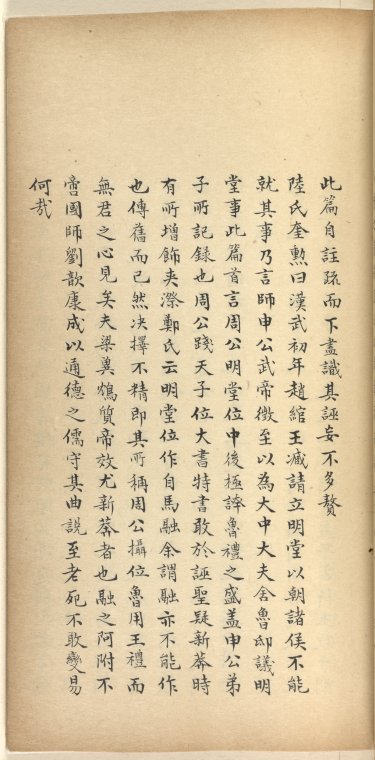 此篇自註疏而下盡識其誣妄不多贅
陸氏奎勳曰漢武初年趙綰王臧請立明堂以朝諸侯不能
就其事乃言師申公武帝徵至以為大中大夫舍魯邸議明
堂事此篇首言周公明堂位中後極誇魯禮之盛蓋申公弟
子所記録也周公踐天子位大書特書敢於誣聖疑新莽時
有所增飾夾漈鄭氏云明堂位作自馬融余謂融亦不能作
也傳舊而已然决擇不精即其所稱周公攝位魯用王禮而
無君之心見矣夫梁冀鴆質帝效尤新莽者也融之阿附不
啻國師劉歆康成以通德之儒守其曲說至老死不敢變易
何哉